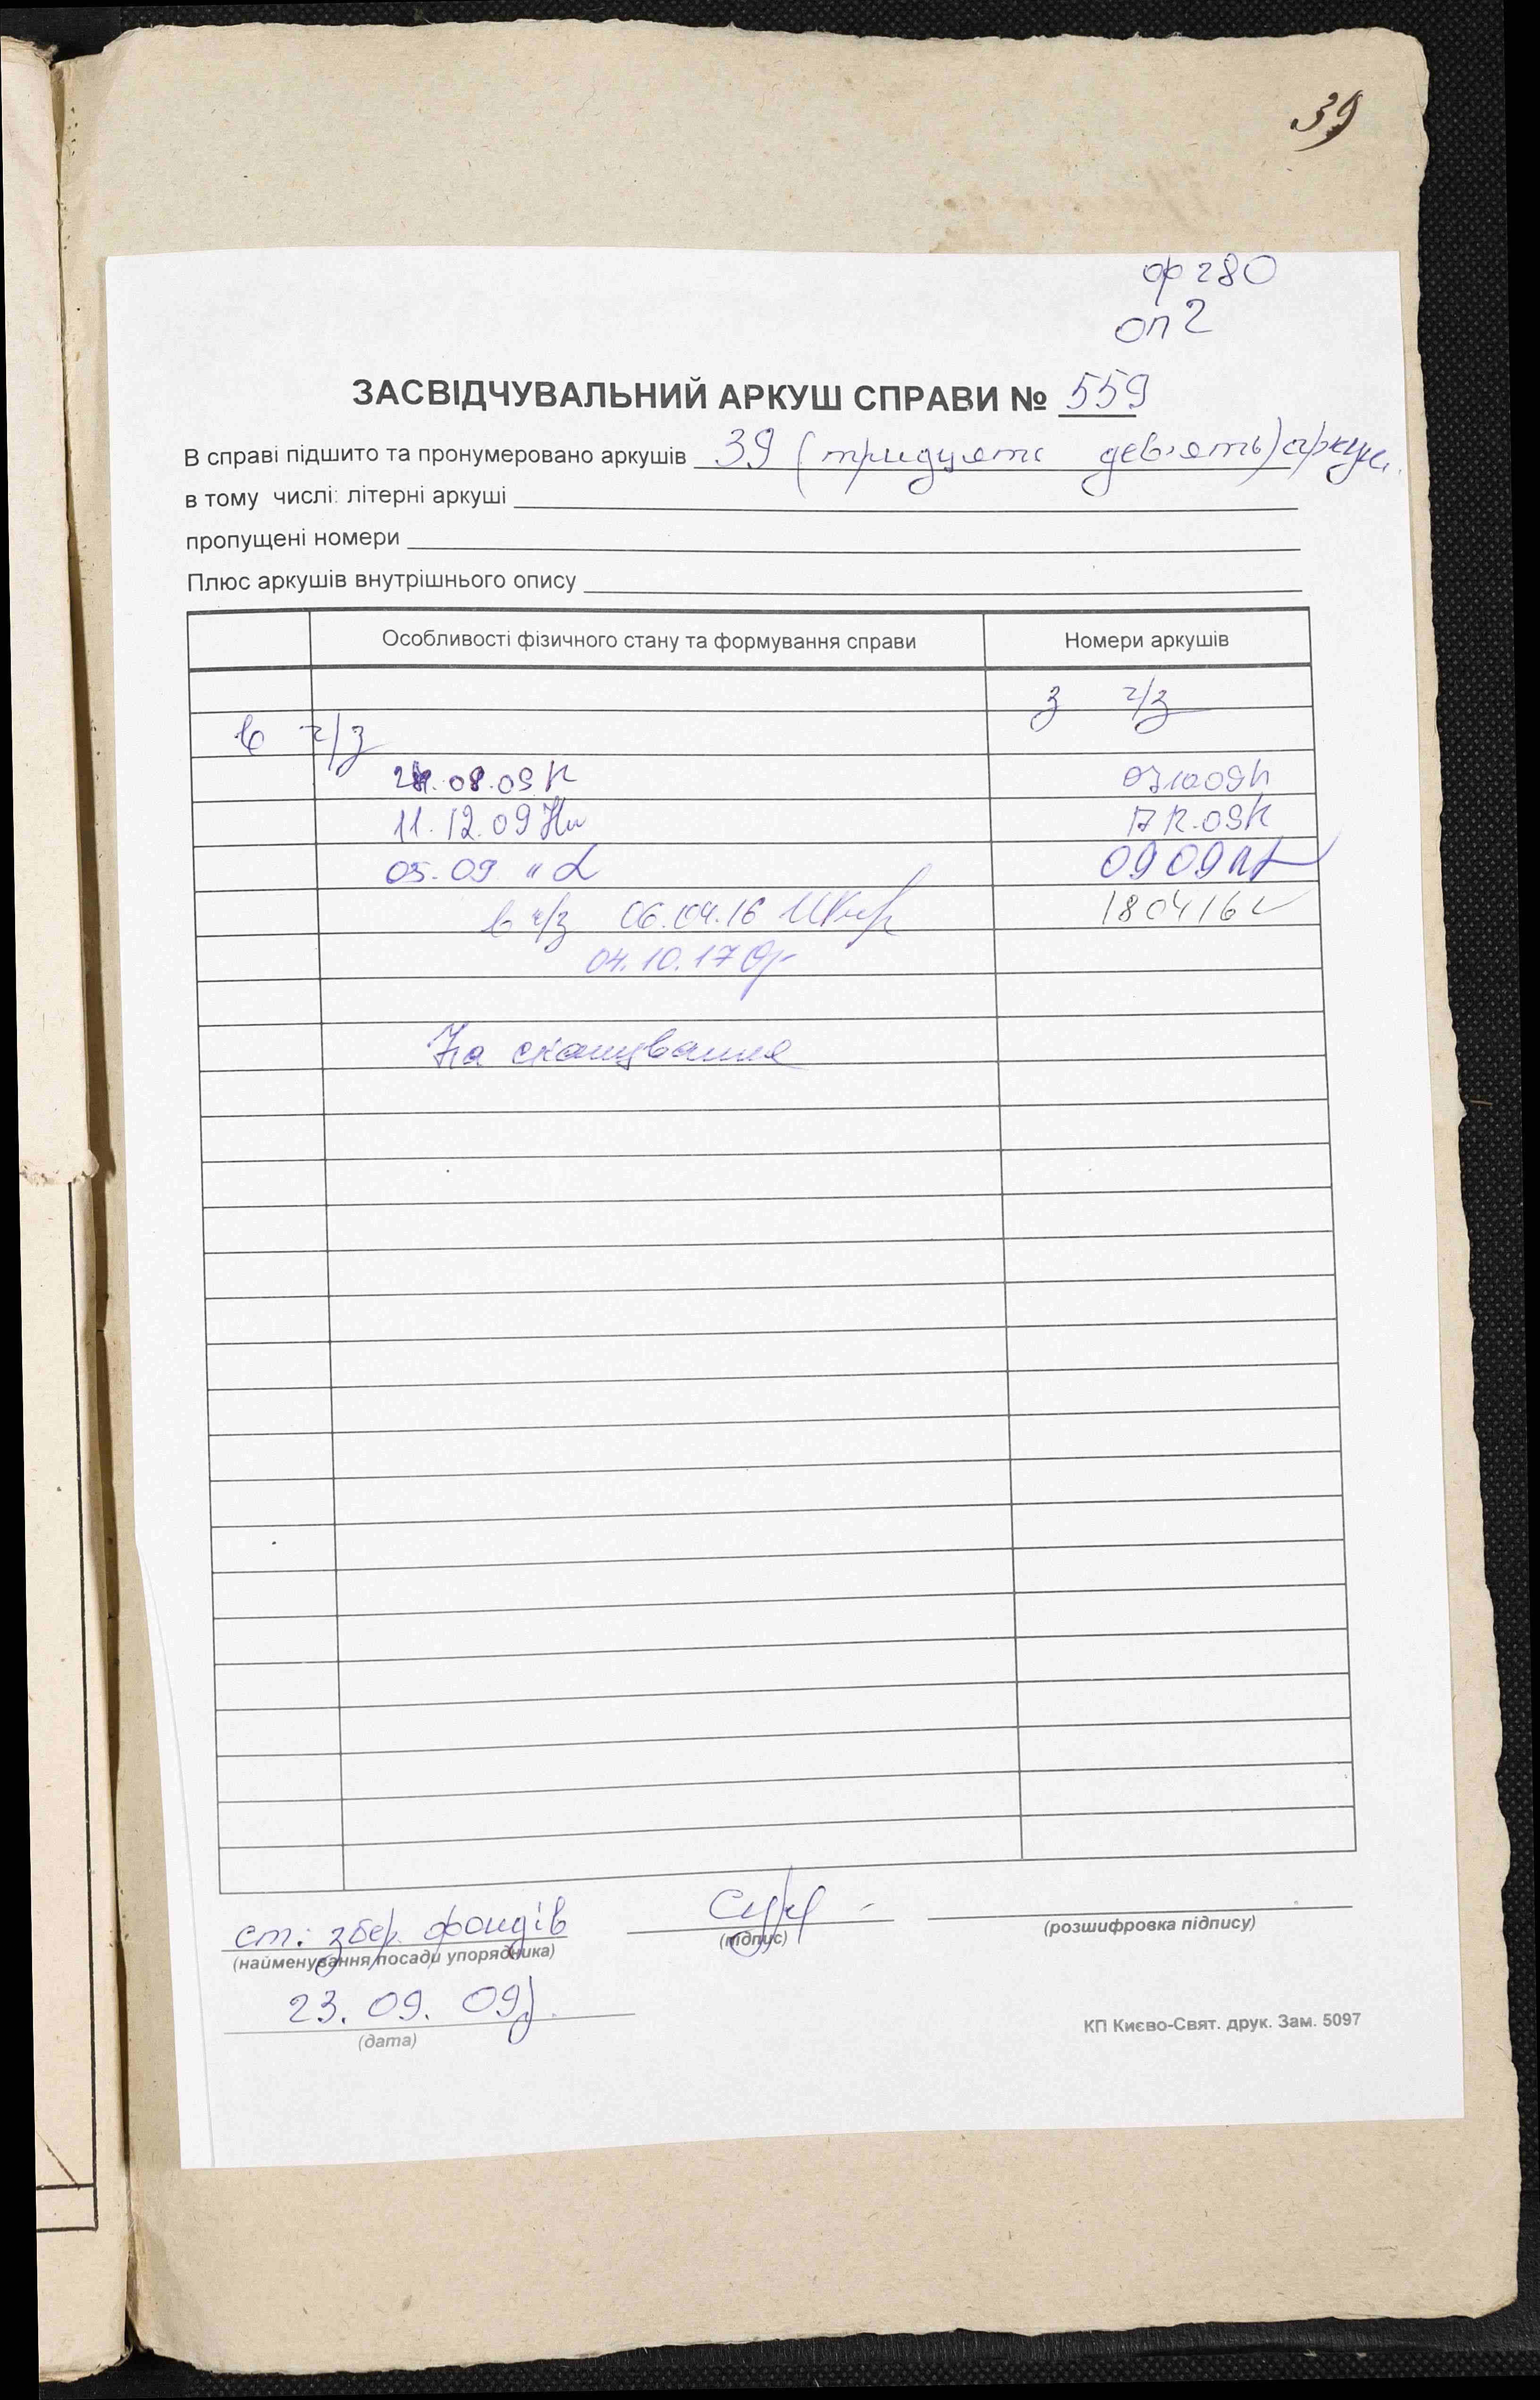 39
ф 280
оп 2
ЗАСВІДЧУВАЛЬНИЙ АРКУШ СПРАВИ № 559
В справі підшито та пронумеровано аркушів 39 (тридцять дев'ять) аркуш.
в тому числі: літерні аркуші
пропущені номери
Плюс аркушів внутрішнього опису
Особливості фізичного стану та формування справи Номери аркушів
з ч/з
в ч/з
08.09
11.12.09 17.12.09
05.09 09 09
в ч/з 06.04.16 180416
04.10.17
На сканування
ст. збер. фондів
(найменування посади упорядника) (підпис) (розшифровка підпису)
23. 09. 09р.
(дата)
КП Києво-Свят. друк. Зам. 5097